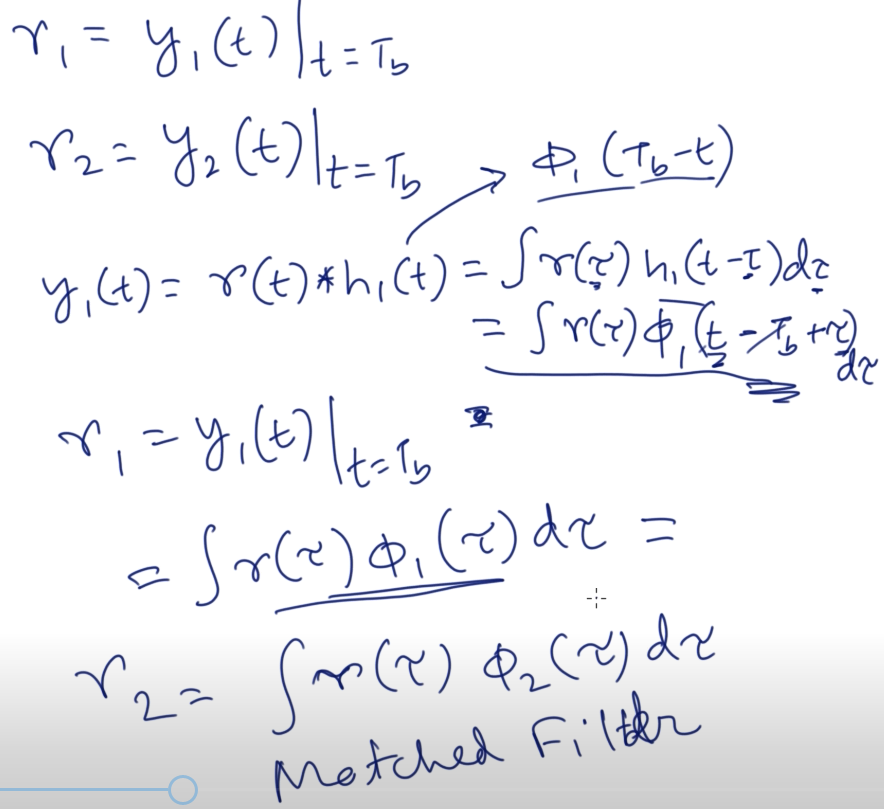 r₁ = y₁(t)|t=T_b
r₂ = y₂(t)|t=T_b → Φ₁(T_b-t)
y₁(t) = r(t)*h₁(t) = ∫r(τ) h₁(t-τ)dτ
= ∫r(τ)Φ₁(t-T_b+τ)dτ
r₁ = y₁(t)|t=T_b
= ∫r(τ)Φ₁(τ)dτ =
r₂ = ∫r(τ) Φ₂(τ)dτ
Matched Filter